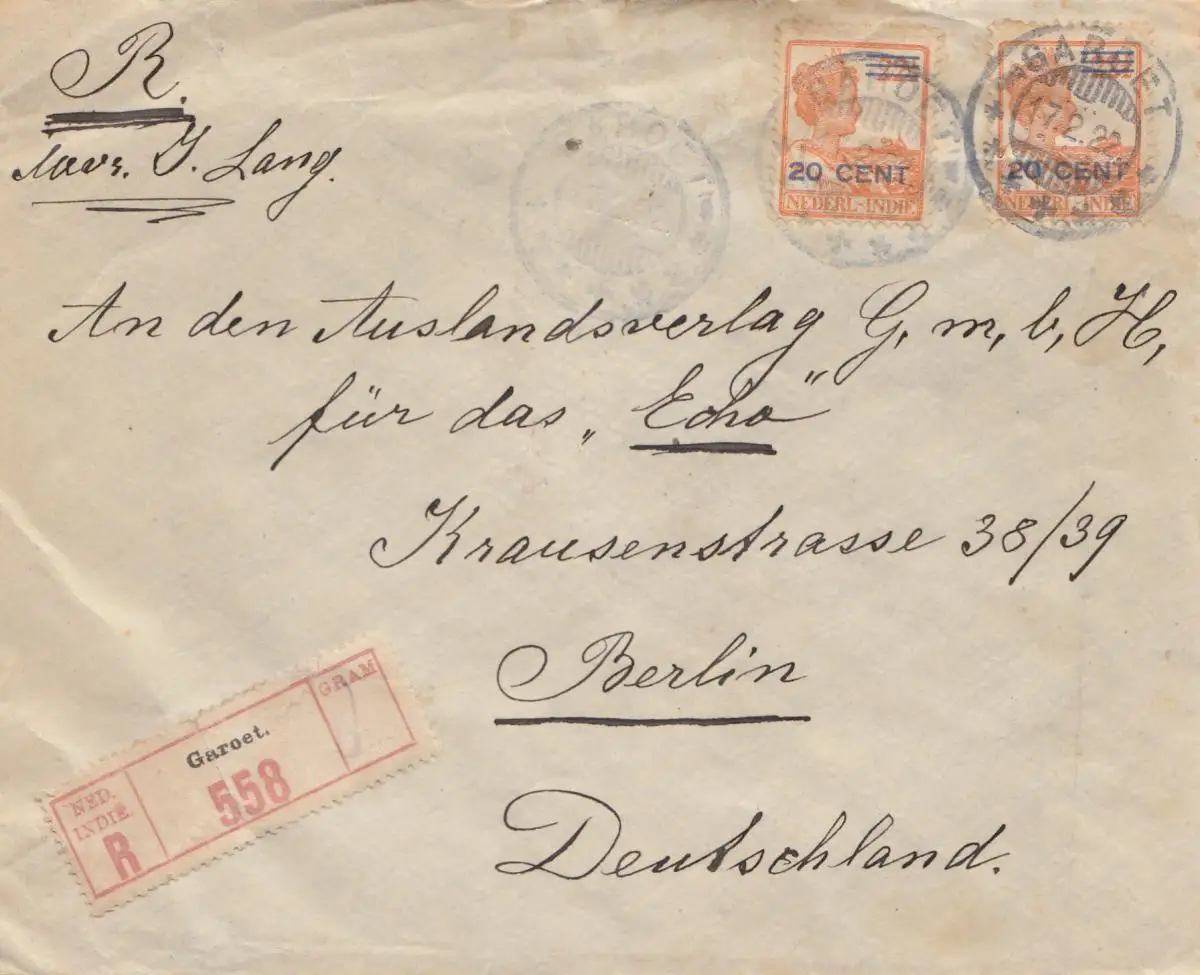 R.
J. Lang.
20 CENT
NEDERL-INDIE
20 CENT
NEDERL-INDIE
GAROET
GAROET
17.2.22
An den Auslandsverlag G, m, b, H,
für das „Echo“
Krausenstrasse 38/39
Berlin
Deutschland.
NED.
INDIË.
R
Garoet.
558
GRAM